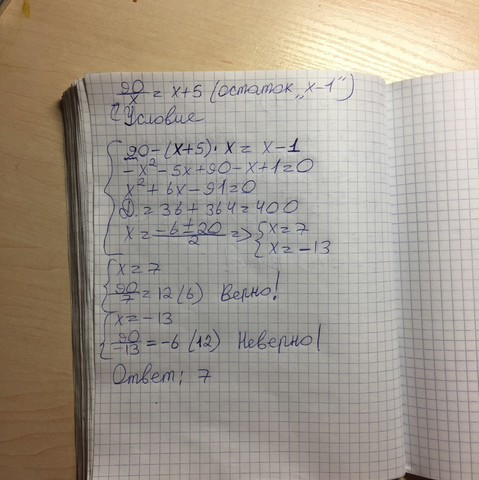 90/x = x+5 (остаток „x-1")
Условие
90-(x+5)·x = x-1
-x²-5x+90-x+1=0
x²+6x-91=0
D.=36+364=400
x = (-6±20)/2 => {x=7
{x=-13
{x=7
90/7=12(6) Верно!
{x=-13
90/-13=-6(12) Неверно!
Ответ: 7